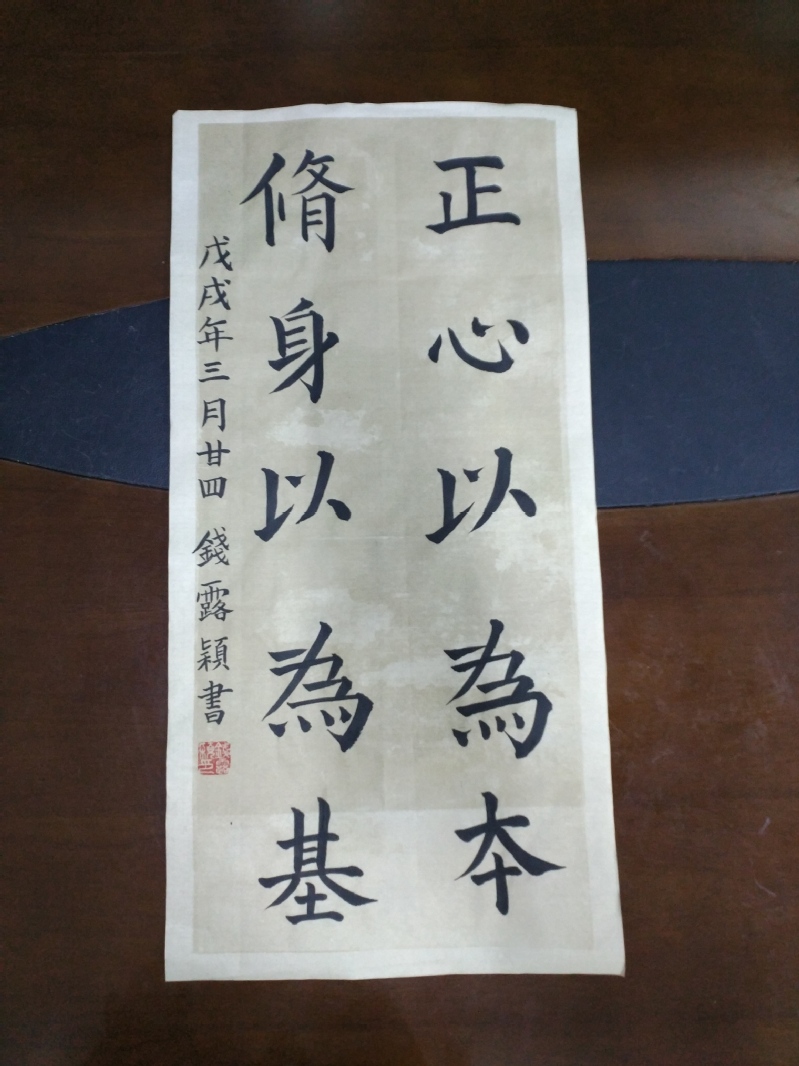 正心以為本
脩身以為基
戊戌年三月廿四 錢露穎書